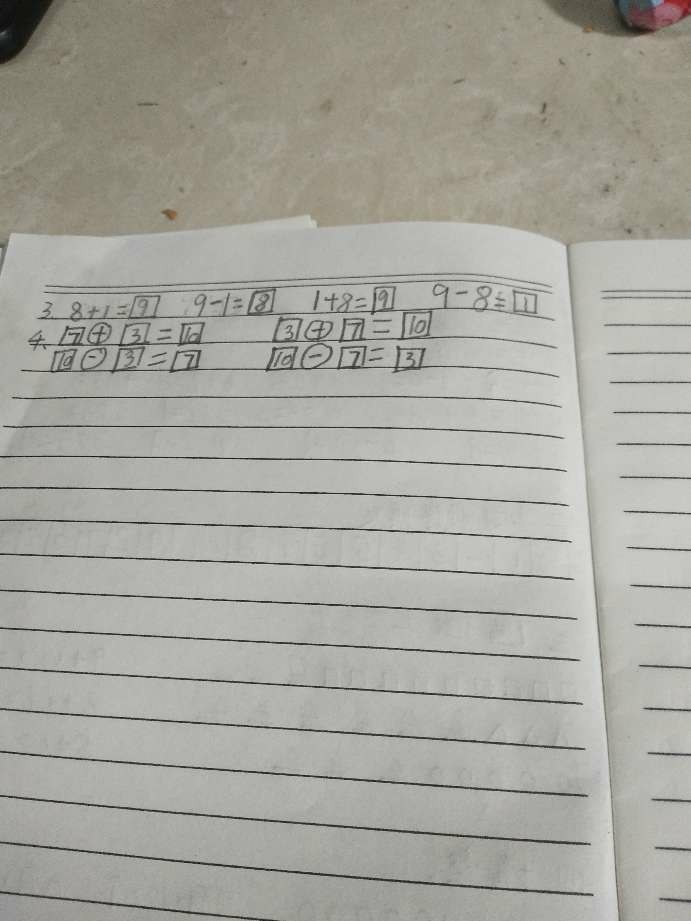 3. 8+1=9 9-1=8 1+8=9 9-8=1
4. 7+3=10 3+7=10
10-3=7 10-7=3